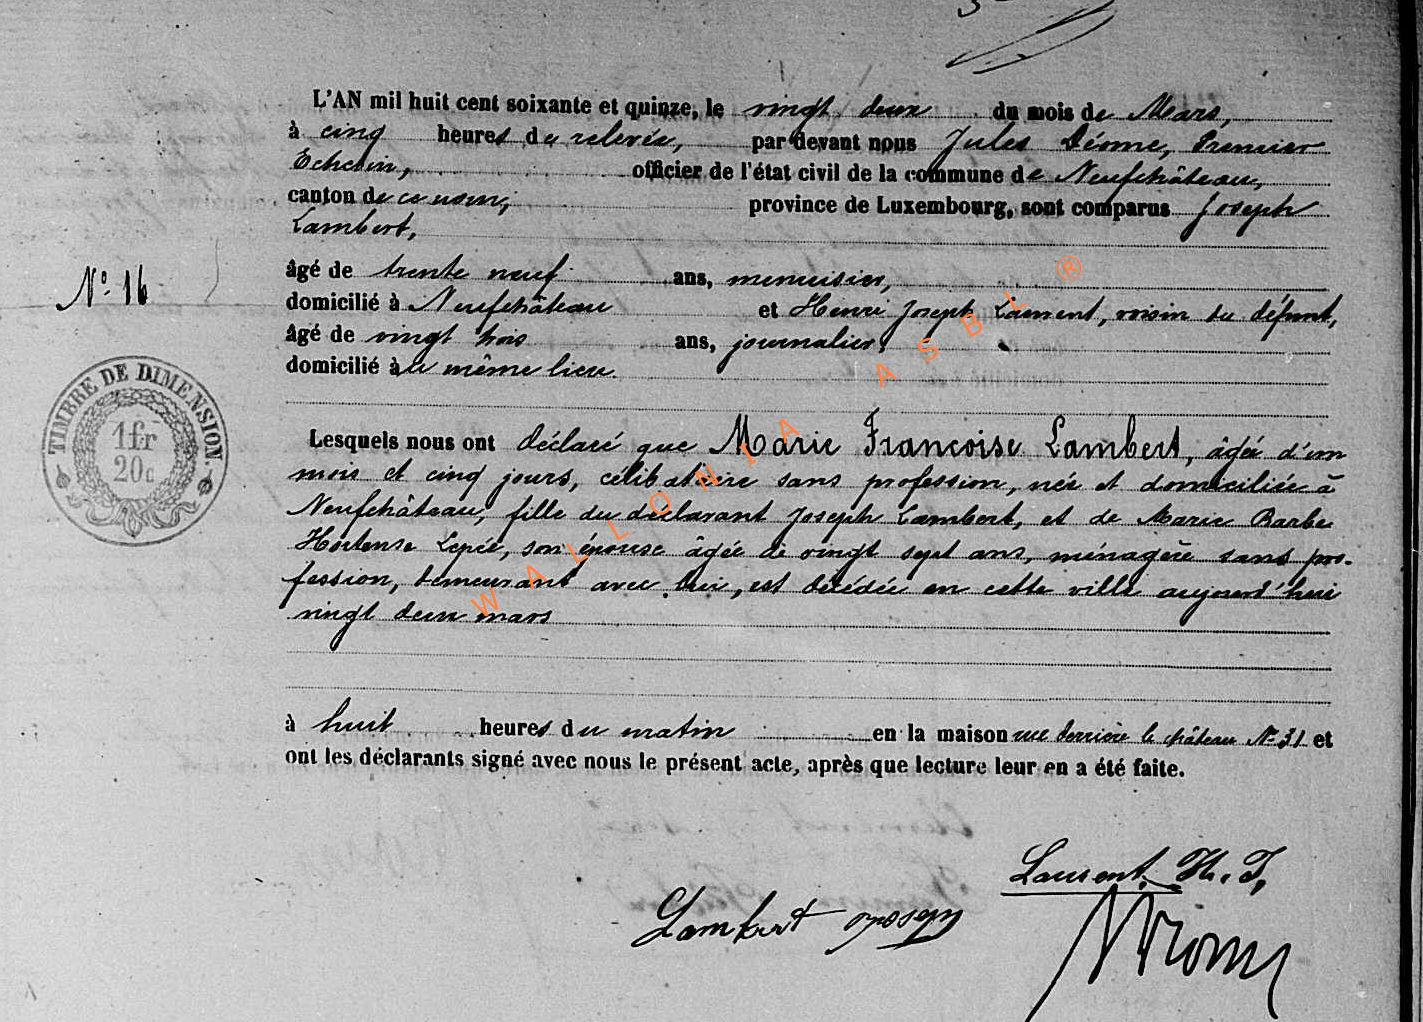 L'AN mil huit cent soixante et quinze, le vingt deux du mois de Mars,
à cinq heures du relevée, par devant nous Jules Dérome, Premier
Echevin, officier de l'état civil de la commune de Neufchâteau,
canton de ce nom, province de Luxembourg, sont comparus Joseph
Lambert,
âgé de trente neuf ans, menuisier,
N° 16
domicilié à Neufchâteau et Henri Joseph Laurent, voisin du défunt,
âgé de vingt trois ans, journalier,
domicilié à le même lieu.
TIMBRE DE DIMENSION.
1fr
20c
Lesquels nous ont déclaré que Marie Francoise Lambert, âgée d'un
mois et cinq jours, célibataire sans profession, née et domiciliée à
Neufchâteau, fille du déclarant Joseph Lambert, et de Marie Barbe
Hortense Lepée, son épouse âgée de vingt sept ans, ménagère sans pro-
fession, demeurant avec lui, est décédée en cette ville aujourd'hui
vingt deux mars
à huit heures du matin en la maison rue derrière le château N° 31 et
ont les déclarants signé avec nous le présent acte, après que lecture leur en a été faite.
Laurent H. J.
Lambert Joseph
WALLONIA ASBL ®